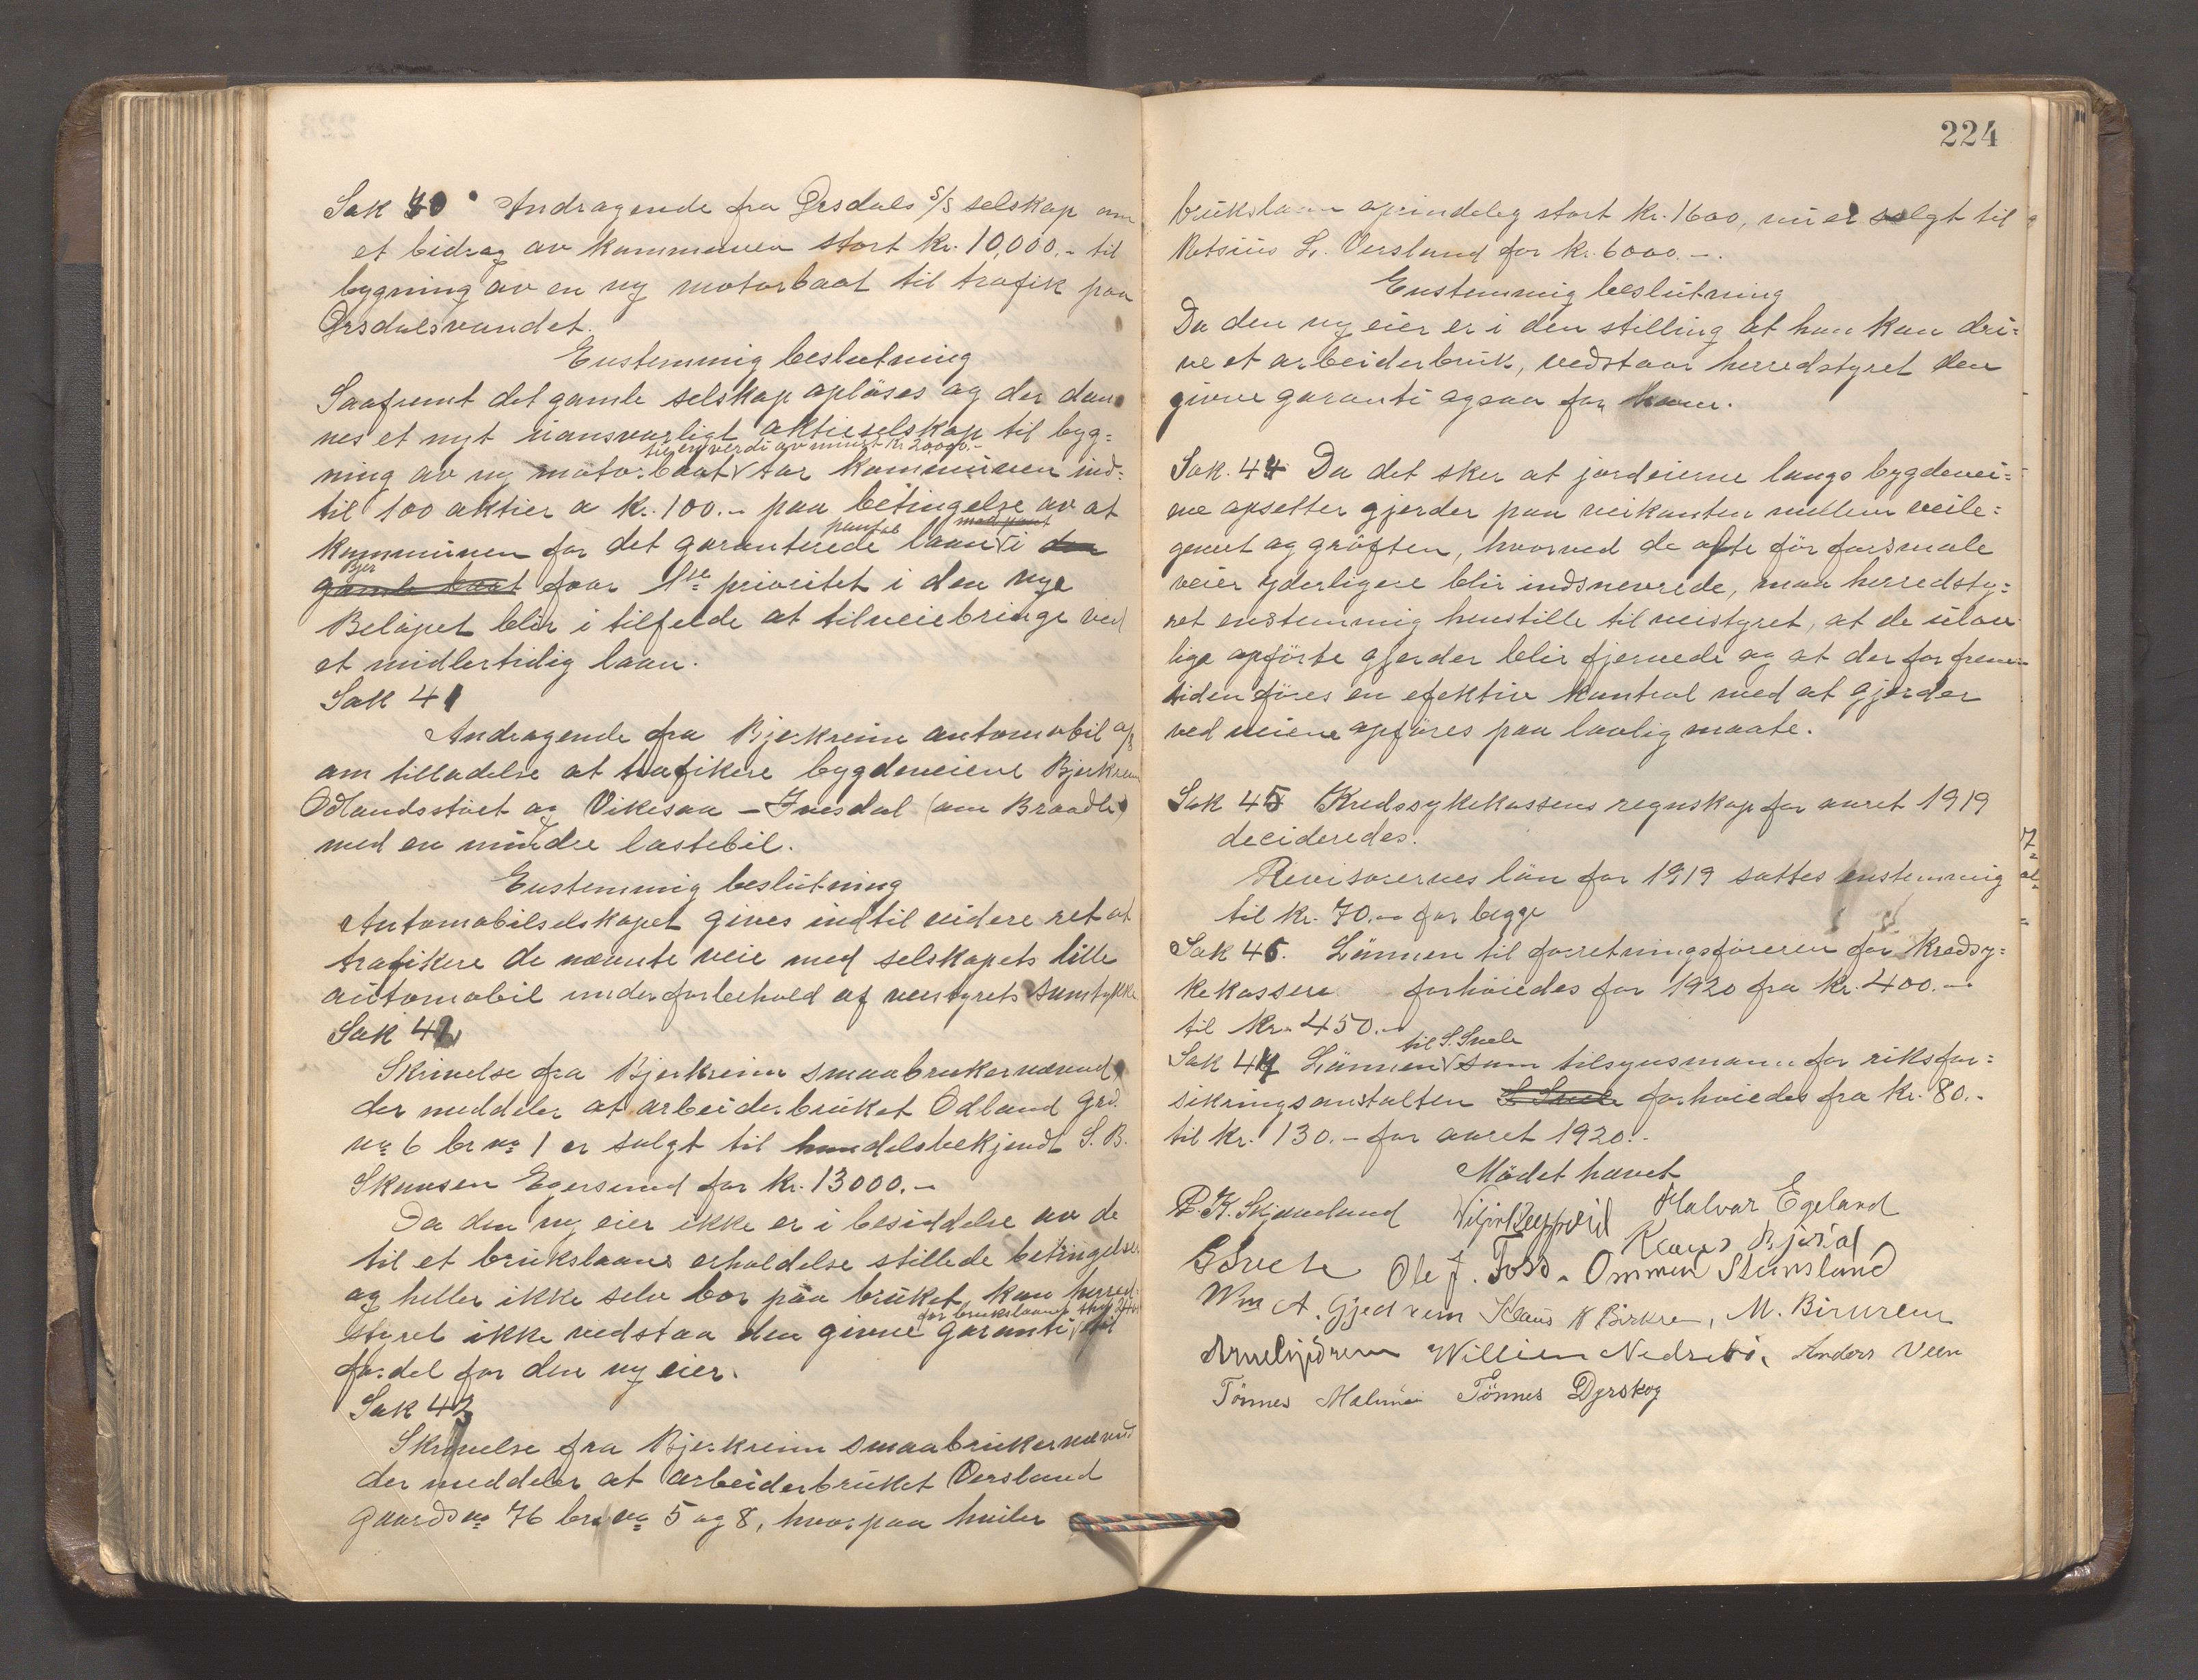 Sak 40 Andragende fra Ørsdals s/s selskap om
et bidrag av kommunen stort kr. 10,000.- til
bygning av en ny motorbaat til trafik paa
Ørsdalsvandet.
Enstemmig beslutning
Saafremt det gamle selskap opløses og der dan
nes et nyt uansvarligt aktieselskap til byg=
til en verdi av minst kr. 20000.-
ning av ny motorbaat tar kommunen ind=
til 100 aktier a kr. 100.- paa betingelse av at
kommunen for det garanterede laan i den
gamle baat faar 1ste prioritet i den nye
Beløpet blir i tilfelde at tilveiebringe ved
et midlertidig laan.
Sak 41
Andragende fra Bjerkreim automobil a/s
om tilladelse at trafikere bygdeveiene Bjerkreim
Odlandsstøet og Vikesaa - Ivesdal (om Braadli)
med en mindre lastebil.
Enstemmig beslutning
Automobilselskapet gives indtil videre ret at
trafikere de nævnte veie med selskapets lille
automobil under forbehold af veistyrets samtykke
Sak 42
Skrivelse fra Bjerkreim smaabrukernævnd
der meddeler at arbeiderbruket Odland grd.
no 6 br no 1 er solgt til handelsbekjendt S. B.
Skaasen Egersund for kr. 13000.-
Da den ny eier ikke er i besiddelse av de
til et brukslaans erholdelse stillede betingelser
og heller ikke selv bor paa bruket, kan herred
for brukslaanet
styret ikke vedstaa den givne garanti til
fordel for den ny eier.
Sak 43
Skrivelse fra Bjerkreim smaabrukernævnd
der meddeler at arbeiderbruket Versland
gaards no 76 br. no 5 og 8, hvorpaa hviler
224
brukslaan oprindelig stort kr. 1600, nu er solgt til
Versland for kr. 6000.-.
Enstemmig beslutning
Da den ny eier er i den stilling at han kan dri=
ve et arbeiderbruk, vedstaar herredstyret den
givne garanti ogsaa for ham.
Sak. 44 Da det sker at jordeierne langs bygdevei=
ne opsetter gjerder paa veikanten mellem veile=
gemet og grøften, hvorved de ofte før forsmale
veier yderligere blir indsnevrede, maa herredsty=
ret enstemmig henstille til veistyret, at de ulov
lige opførte gjerder blir fjernede og at der for frem
tiden føres en efektiv kontrol med at gjerder
ved veiene opføres paa lovlig maate.
Sak 45 Kredssykekassens regnskap for aaret 1919
decideredes.
Revisorernes løn for 1919 sattes enstemmig
til kr. 70.- for begge
Sak 46. Lønnen til forretningsføreren for kredssy=
kekassen forhøiedes for 1920 fra kr. 400.-
til kr. 450.-
til S. Svele
Sak 47 Lønnen som tilsynsmann for riksfor=
sikringsanstalten S. Svele forhøiedes fra kr. 80.-
til kr. 130.- for aaret 1920.-
Mødet hævet
Halvar Egeland
S Svele Ole J. Foss. Ommen Stensland
Wm A. Gjedrem Klaus Birkrem, M. Birkrem
Anders Veen
Tønnes Tønnes Dyrskog